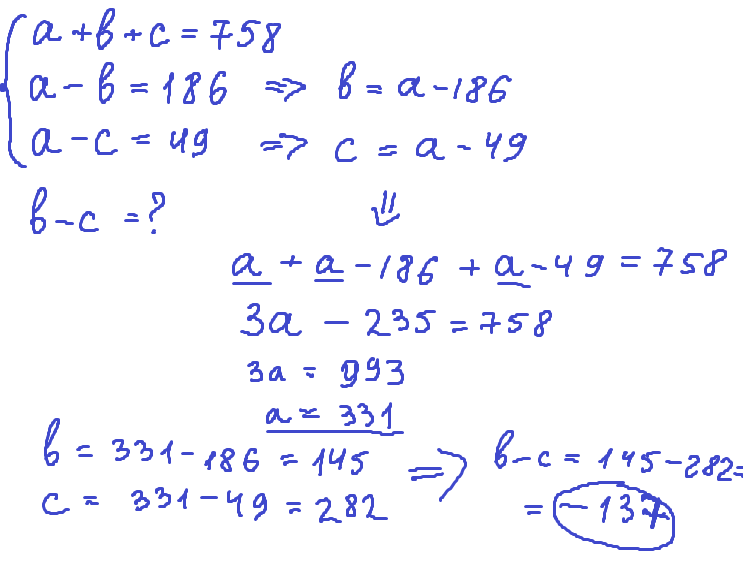 a + b + c = 758
a - b = 186 => b = a - 186
a - c = 49 => c = a - 49
b - c = ?
⇓
a + a - 186 + a - 49 = 758
3a - 235 = 758
3a = 993
a = 331
b = 331 - 186 = 145
c = 331 - 49 = 282
=> b - c = 145 - 282 =
= -137